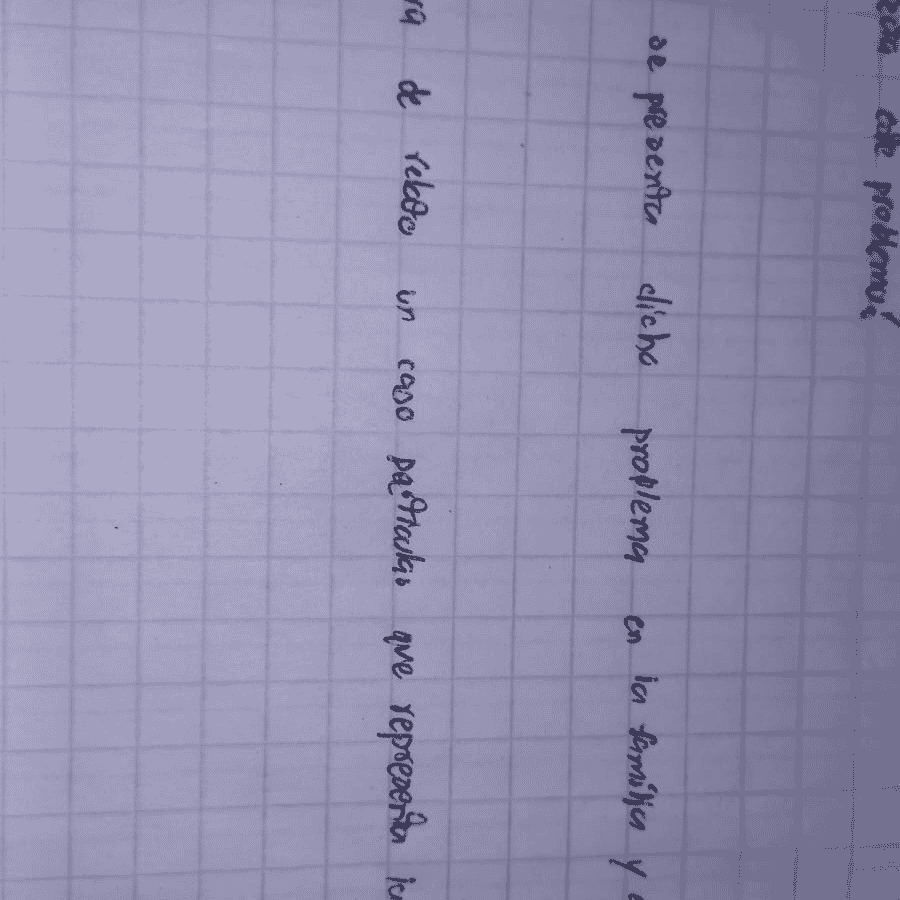 este problema?
se presenta dicho problema en la familia y
de relato un caso particular que representa la